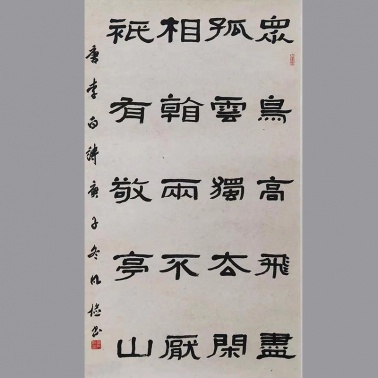 眾鳥高飛盡
孤雲獨去閑
相看兩不厭
祇有敬亭山
唐李白詩庚子冬書